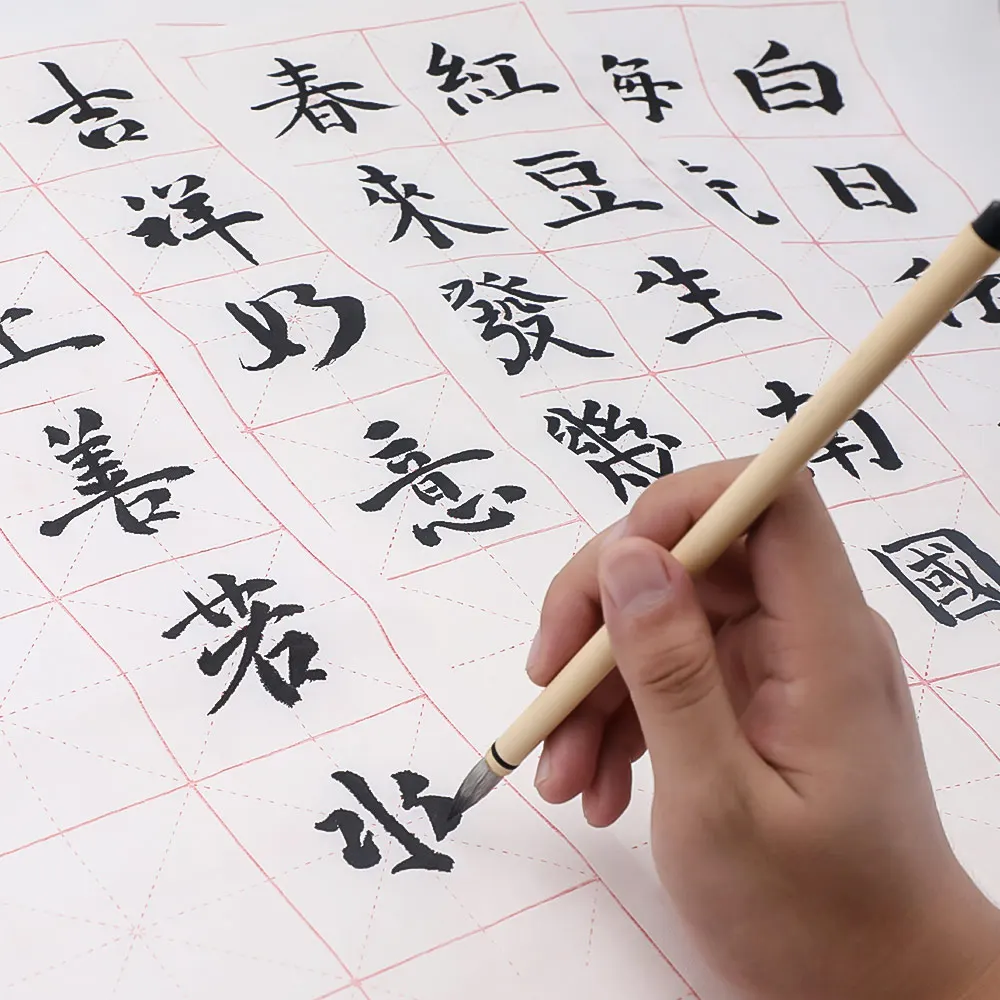 白日
每
紅豆生南國
春來發幾
吉祥如意
上善若水